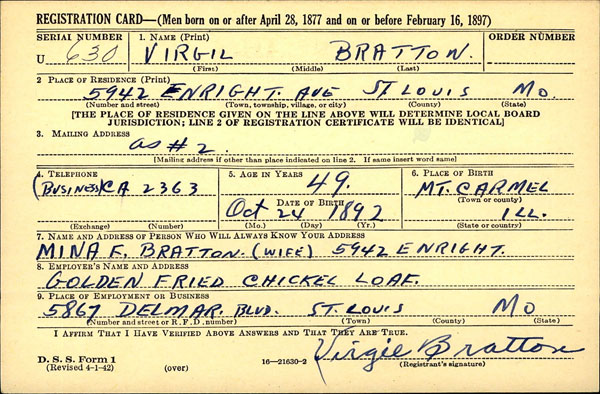 REGISTRATION CARD—(Men born on or after April 28, 1877 and on or before February 16, 1897)
SERIAL NUMBER 1. NAME (Print) ORDER NUMBER
U 630 VIRGIL BRATTON.
(First) (Middle) (Last)
2 PLACE OF RESIDENCE (Print)
5942 ENRIGHT AVE ST LOUIS MO.
(Number and street) (Town, township, village, or city) (County) (State)
[THE PLACE OF RESIDENCE GIVEN ON THE LINE ABOVE WILL DETERMINE LOCAL BOARD
JURISDICTION; LINE 2 OF REGISTRATION CERTIFICATE WILL BE IDENTICAL]
3. MAILING ADDRESS
as #2.
[Mailing address if other than place indicated on line 2. If same insert word same]
4. TELEPHONE 5. AGE IN YEARS 6. PLACE OF BIRTH
(BUSINESS) CA 2363 49. MT. CARMEL
DATE OF BIRTH (Town or county)
Oct 24 1892 ILL.
(Exchange) (Number) (Mo.) (Day) (Yr.) (State or country)
7. NAME AND ADDRESS OF PERSON WHO WILL ALWAYS KNOW YOUR ADDRESS
MINA F. BRATTON. (WIFE) 5942 ENRIGHT.
8. EMPLOYER'S NAME AND ADDRESS
GOLDEN FRIED CHICKEL LOAF.
9. PLACE OF EMPLOYMENT OR BUSINESS
5867 DELMAR. BLVD. ST. LOUIS MO
(Number and street or R. F. D. number) (Town) (County) (State)
I AFFIRM THAT I HAVE VERIFIED ABOVE ANSWERS AND THAT THEY ARE TRUE.
Virgil Bratton
D. S. S. Form 1
(Revised 4-1-42) (over) 16—21630-2 (Registrant's signature)